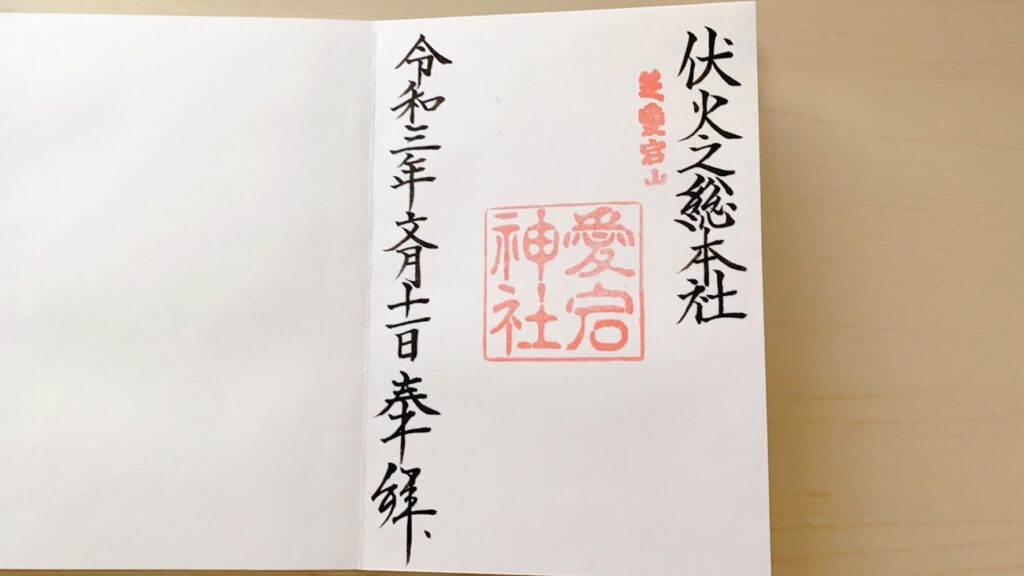 伏火之総本社
芝愛宕山
愛宕
神社
令和三年文月十一日奉拝